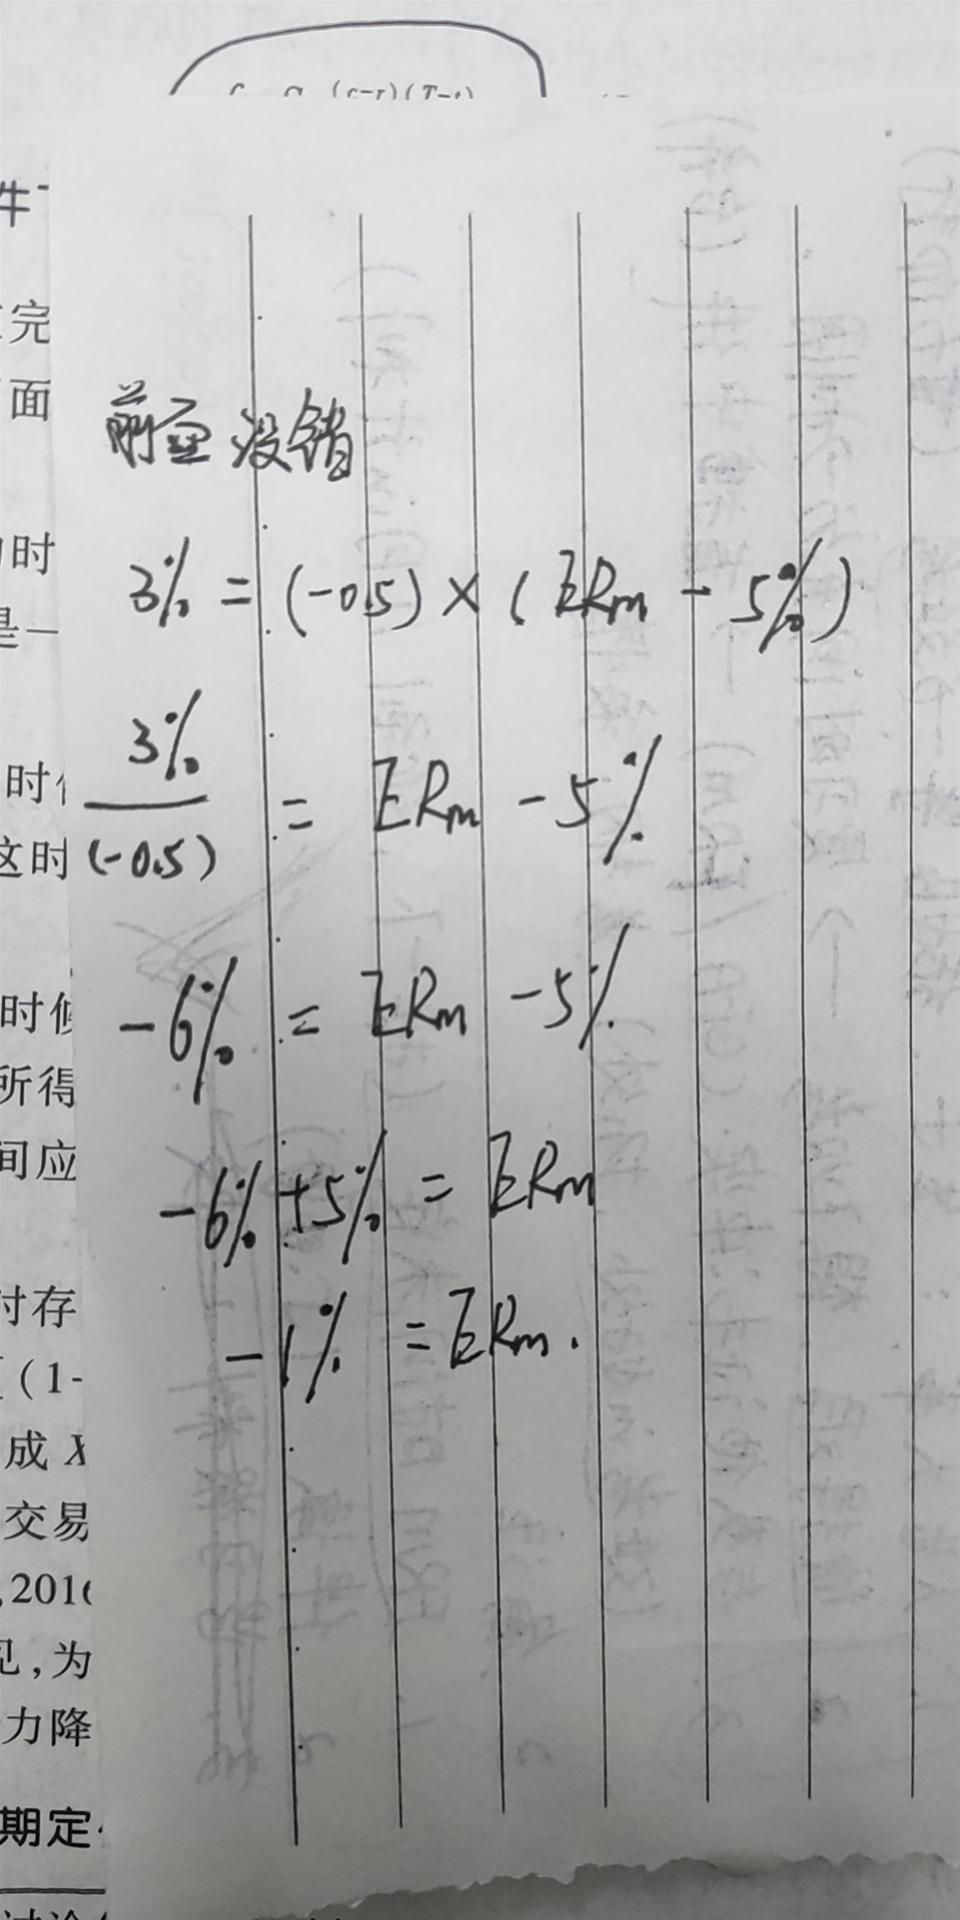 (c-r)(T-t)
牛
完
面
前面没错
时
3% = (-0.5) × (ERm - 5%)
是一
3%
时
―― = ERm - 5%
这时
(-0.5)
-6% = ERm - 5%
时候
所得
间应
-6% + 5% = ERm
时存
-1% = ERm.
(1-
成 X
交易
,2016
见,为
力降
期定